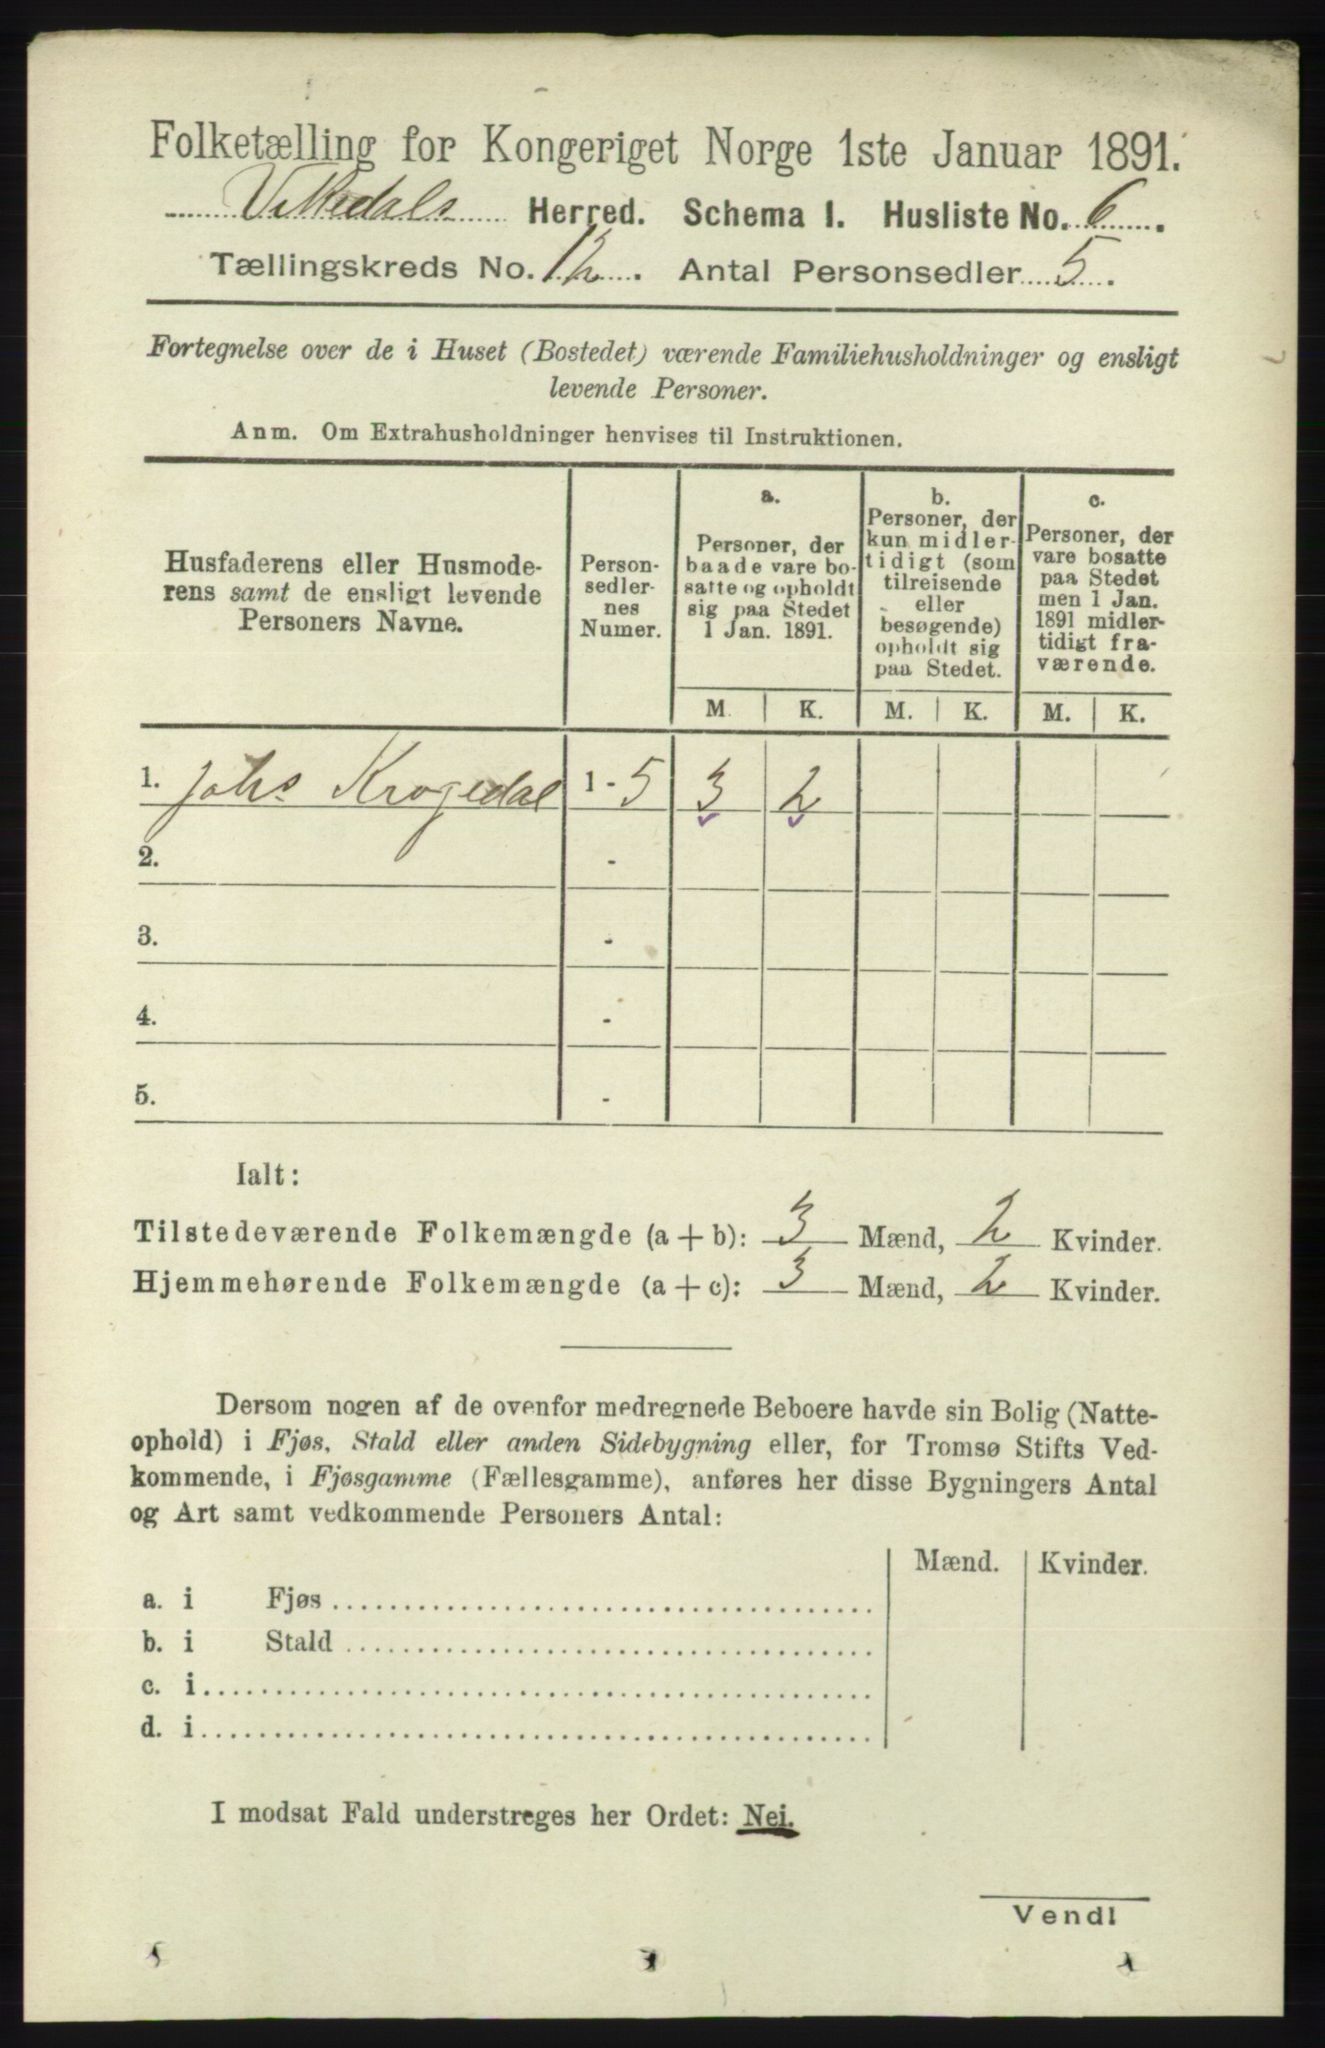 Folketælling for Kongeriget Norge 1ste Januar 1891.
Vikedals Herred. Schema I. Husliste No. 6.
Tællingskreds No. 12. Antal Personsedler 5.
Fortegnelse over de i Huset (Bostedet) værende Familiehusholdninger og ensligt
levende Personer.
Anm. Om Extrahusholdninger henvises til Instruktionen.
Husfaderens eller Husmode-
rens samt de ensligt levende
Personers Navne.
Person-
sedler-
nes
Numer.
a.
Personer, der
baade vare bo-
satte og opholdt
sig paa Stedet
1 Jan. 1891.
b.
Personer, der
kun midler-
tidigt (som
tilreisende
eller
besøgende)
opholdt sig
paa Stedet.
c.
Personer, der
vare bosatte
paa Stedet
men 1 Jan.
1891 midler-
tidigt fra-
værende.
M. K. M. K. M. K.
1. Johs Krogedal 1 - 5 3 2
2. -
3. -
4. -
5. -
Ialt:
Tilstedeværende Folkemængde (a + b): 3 Mænd, 2 Kvinder.
Hjemmehørende Folkemængde (a + c): 3 Mænd, 2 Kvinder.
Dersom nogen af de ovenfor medregnede Beboere havde sin Bolig (Natte-
ophold) i Fjøs, Stald eller anden Sidebygning eller, for Tromsø Stifts Ved-
kommende, i Fjøsgamme (Fællesgamme), anføres her disse Bygningers Antal
og Art samt vedkommende Personers Antal:
Mænd. Kvinder.
a. i Fjøs
b. i Stald
c. i
d. i
I modsat Fald understreges her Ordet: Nei.
Vend!